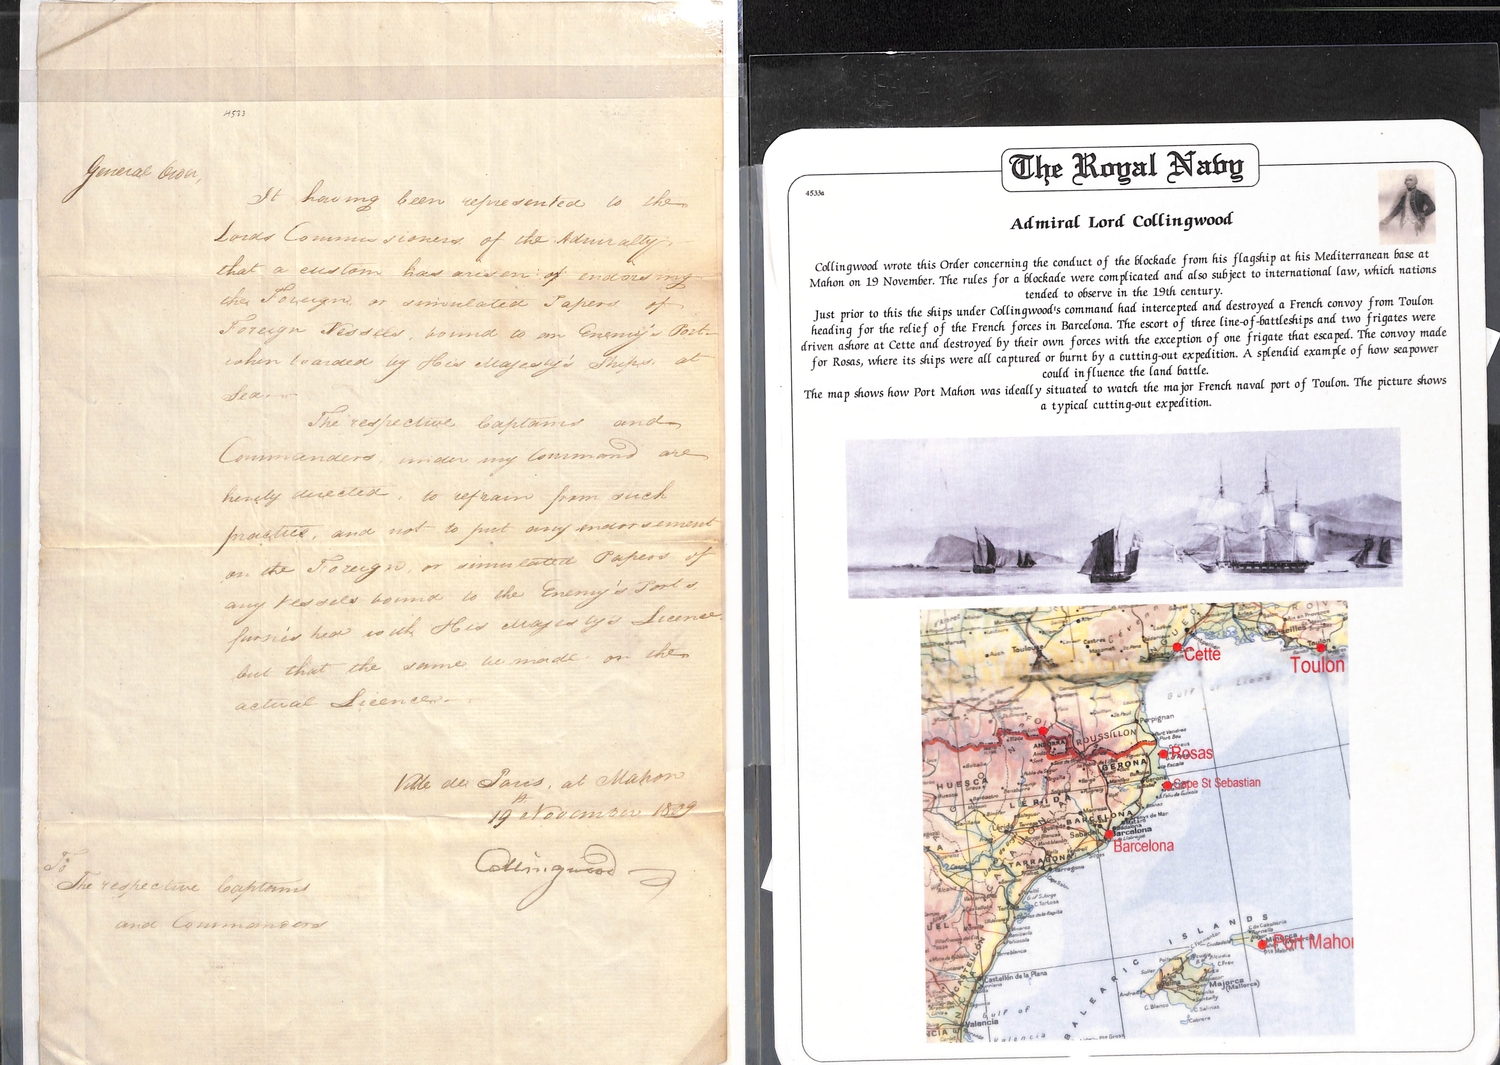 4533
General Order,
It having been represented to the
Lords Commissioners of the Admiralty,
that a custom has arisen of endorsing
the Foreign, or simulated Papers of
Foreign Vessels, bound to an Enemy's Port
when boarded by His Majesty's Ships at
Sea
The respective Captains and
Commanders, under my Command are
hereby directed, to refrain from such
practice, and not to put any endorsement
on the Foreign, or simulated Papers of
any Vessels bound to the Enemy's Ports
furnished with His Majesty's Licence
but that the same be made on the
actual Licence.
Ville de Paris, at Mahon
19th November 1809
Collingwood
To
The respective Captains
and Commanders
The Royal Navy
4533a
Admiral Lord Collingwood
Collingwood wrote this Order concerning the conduct of the blockade from his flagship at his Mediterranean base at
Mahon on 19 November. The rules for a blockade were complicated and also subject to international law, which nations
tended to observe in the 19th century.
Just prior to this the ships under Collingwood's command had intercepted and destroyed a French convoy from Toulon
heading for the relief of the French forces in Barcelona. The escort of three line-of-battleships and two frigates were
driven ashore at Cette and destroyed by their own forces with the exception of one frigate that escaped. The convoy made
for Rosas, where its ships were all captured or burnt by a cutting-out expedition. A splendid example of how seapower
could influence the land battle.
The map shows how Port Mahon was ideally situated to watch the major French naval port of Toulon. The picture shows
a typical cutting-out expedition.
Cette
Toulon
Toulouse
Marseilles
Gulf of Lions
Perpignan
ROUSSILLON
ANDORRA
Rosas
GERONA
Cape St Sebastian
HUESCA
LERIDA
BARCELONA
Barcelona
Barcelona
TARRAGONA
Tarragona
BALEARIC ISLANDS
Port Mahon
Castellón de la Plana
CASTELLÓN
Majorca
(Mallorca)
Valencia
Gulf of
Valencia